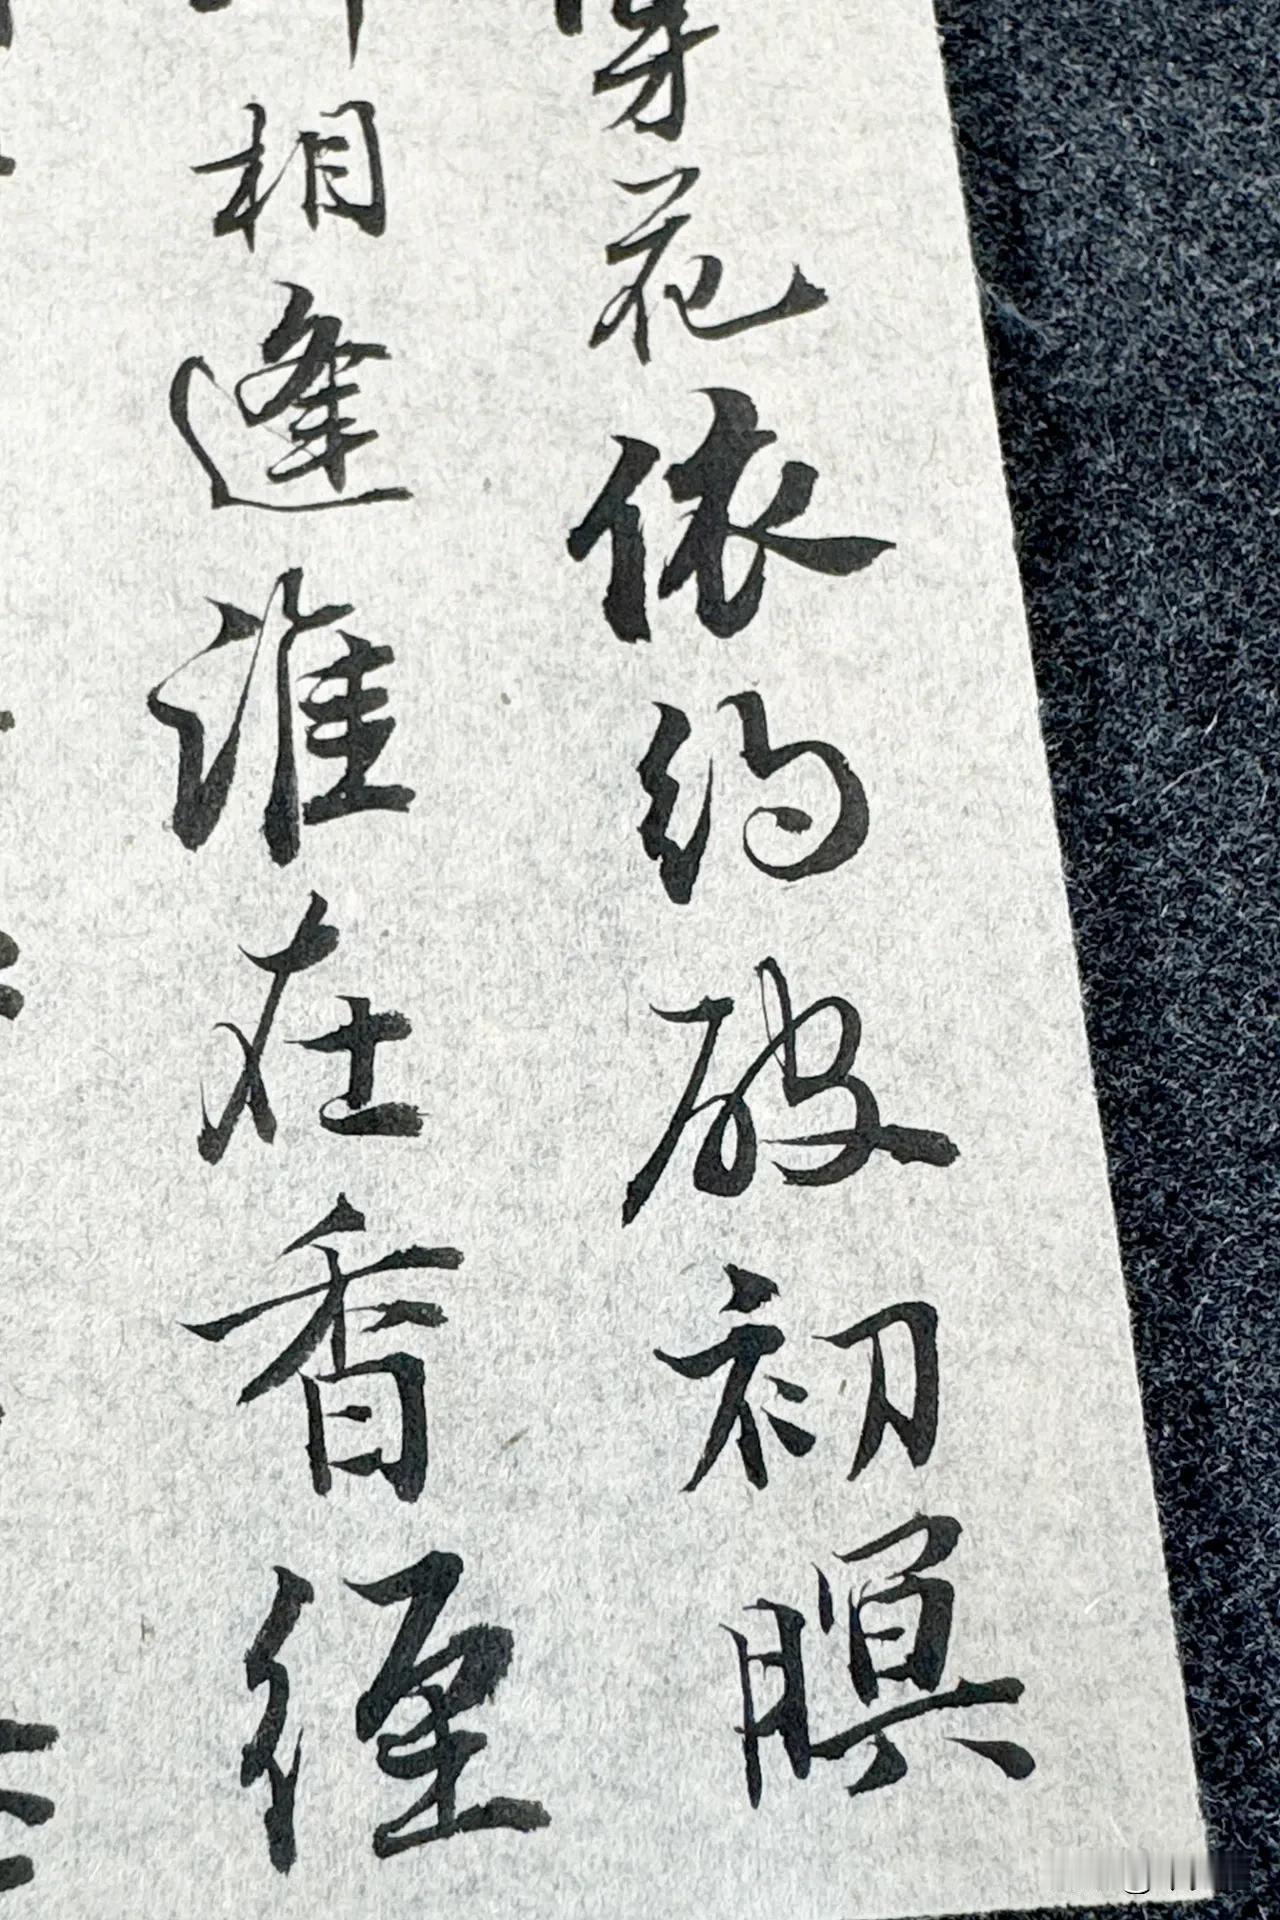 穿花依约破初暝
相逢谁在香径